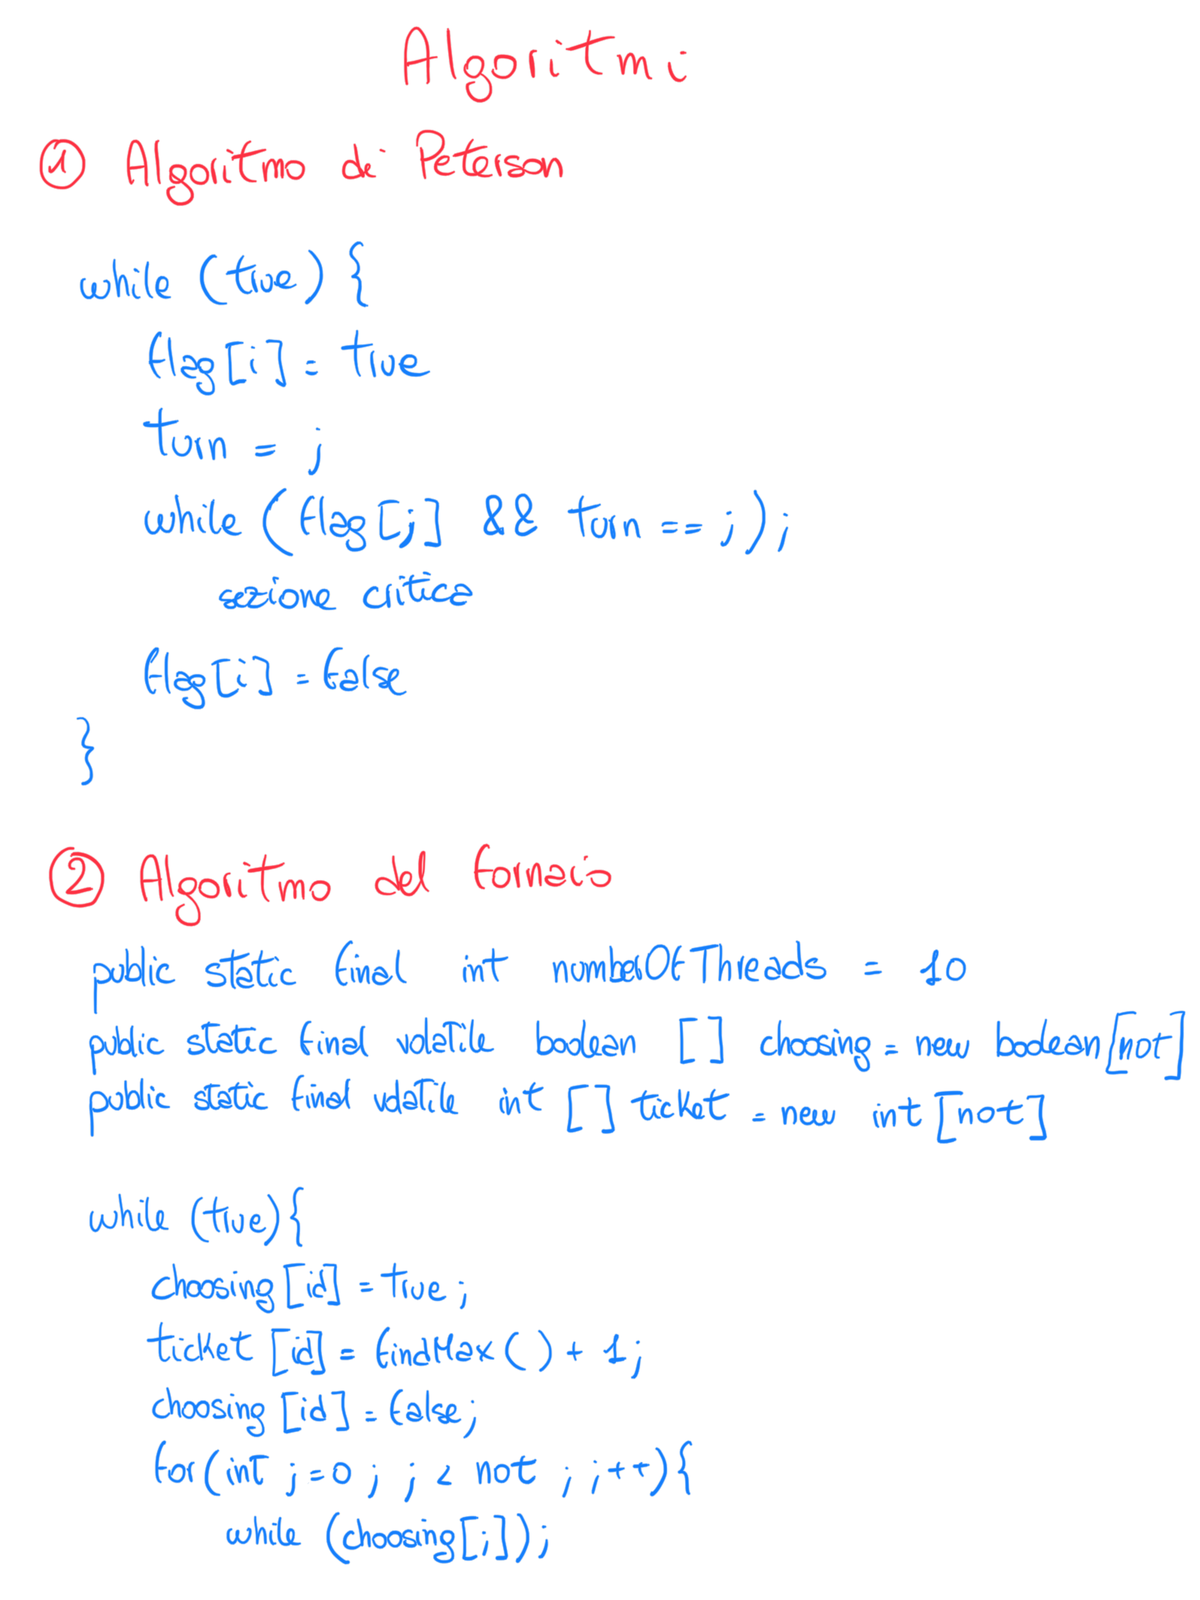 Algoritmi
1 Algoritmo di Peterson
while (true) {
flag[i] = true
turn = j
while (flag[j] && turn == j);
sezione critica
flag[i] = false
}
2 Algoritmo del fornaio
public static final int numberOfThreads = 10
public static final volatile boolean [] choosing = new boolean[not]
public static final volatile int [] ticket = new int [not]
while (true){
choosing [id] = true;
ticket [id] = findMax() + 1;
choosing [id] = false;
for(int j=0; j < not ; j++){
while (choosing[j]);